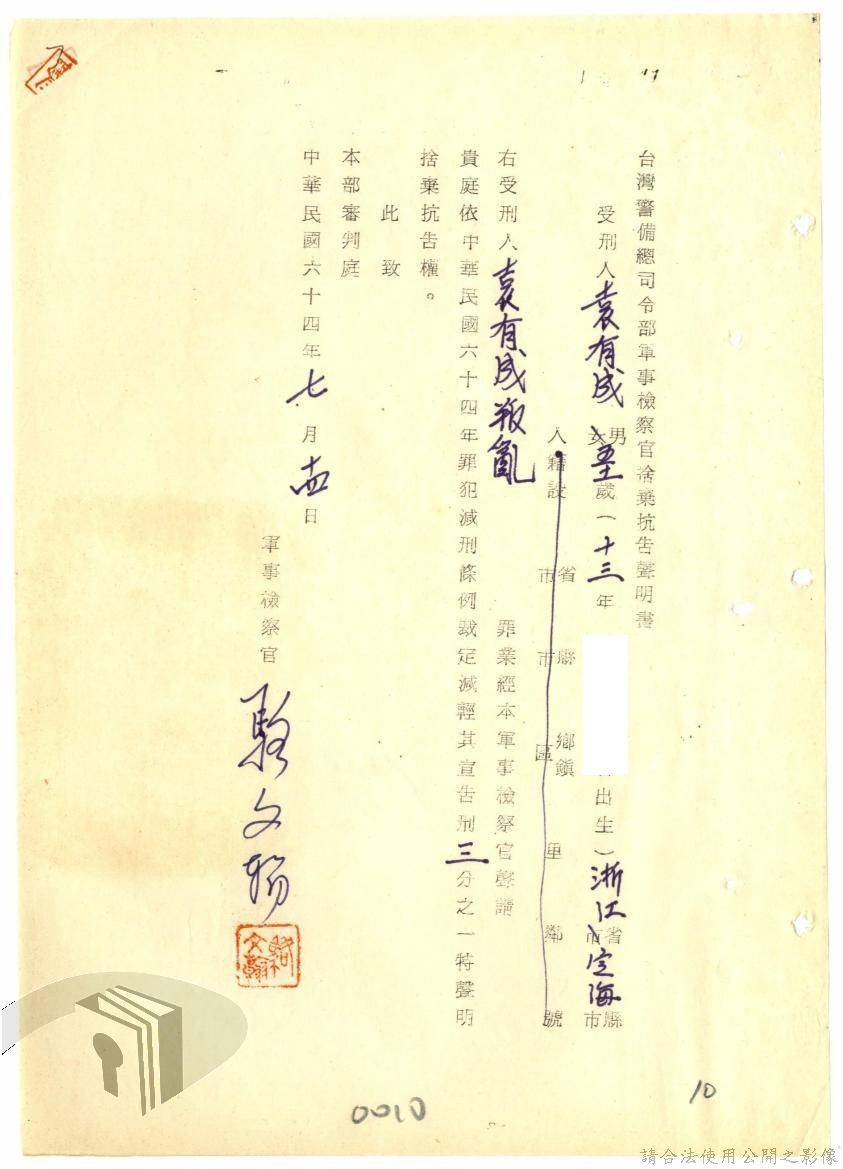 台灣警備總司令部軍事檢察官捨棄抗告聲明書
受刑人袁有成 男女 五十一歲(十三年 出生)浙江省市定海縣市
人籍設 省市 縣市 鄉鎮區 里 鄰 號
右受刑人袁有成叛亂 罪業經本軍事檢察官聲請
貴庭依中華民國六十四年罪犯減刑條例裁定減輕其宣告刑三分之一特聲明
捨棄抗告權。
此致
本部審判庭
中華民國六十四年七月十四日
軍事檢察官
10
0010
請合法使用公開之影像